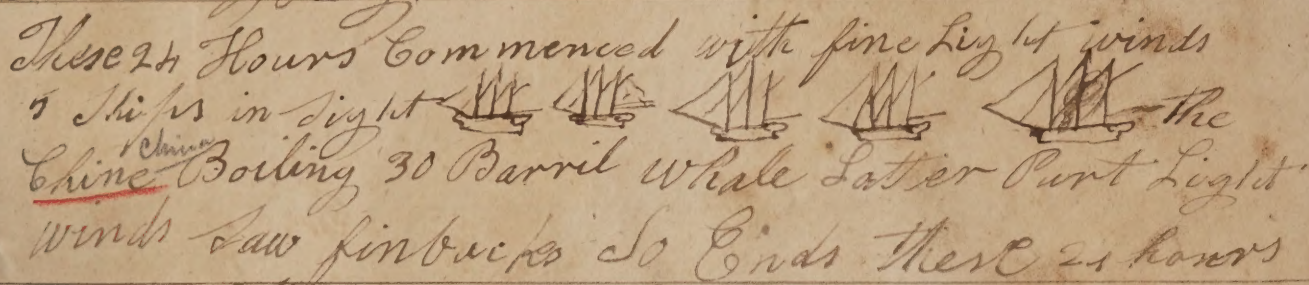 These 24 Hours Commenced with fine Light winds
5 Ships in Sight the
China
Chine Boiling 30 Barril Whale Latter Part Light
winds Saw finbacks So Ends these 24 hours